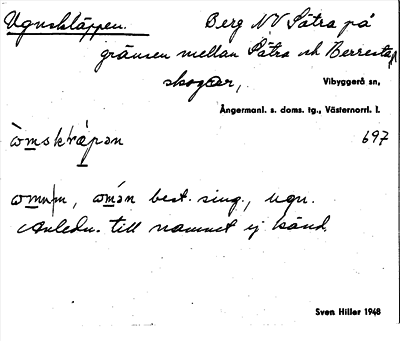 Ugnskläppen. Berg NV Sätra på
gränsen mellan Sätra och Berrestaps
skogar, Vibyggerå sn,
Ångermanl. s. doms. tg., Västernorrl. l.
òmsklæpən 697
best. sing., ugn.
Anledn. till namnet ej känd.
Sven Hiller 1948